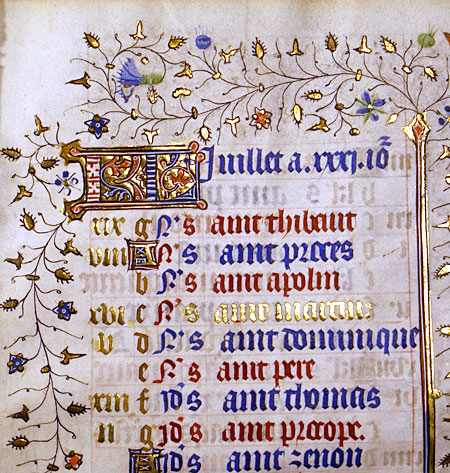 KL Juillet a .xxxi. io᷒
xix g Ns saint thibaut
viii A Ns saint proces
b Ns saint apolin
xvi c Ns saint martin
v d Ns saint dominique
e Ns saint pere
xiii f ids saint thomas
ii g ids saint procope.
A ids saint zenon